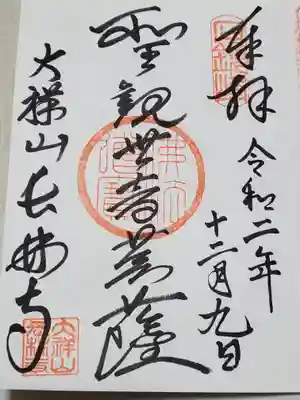 奉拝
令和二年
十二月九日
聖観世音菩薩
大祥山
長典寺
大祥山